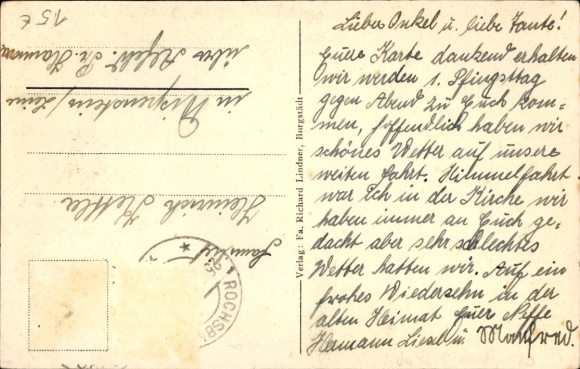 15 €
Lieber Onkel u. liebe Tante!
Eure Karte dankend erhalten
wir werden 1. Pfingsttag
gegen Abend zu Euch kom-
men, hoffendlich haben wir
schönes Wetter auf unsere
weiten Fahrt. Himmelfahrt
war Ich in der Kirche wir
haben immer an Euch ge-
dacht aber sehr schlechtes
Wetter hatten wir. Auf ein
frohes Wiedersehn in der
alten Heimat Euer Neffe
Hermann Liesel u. Manfred.
Verlag: Fa. Richard Lindner, Burgstädt
Familie
Heinrich Kettler
in Wispenstein/Leine
über Alfeld.
ROCHSB